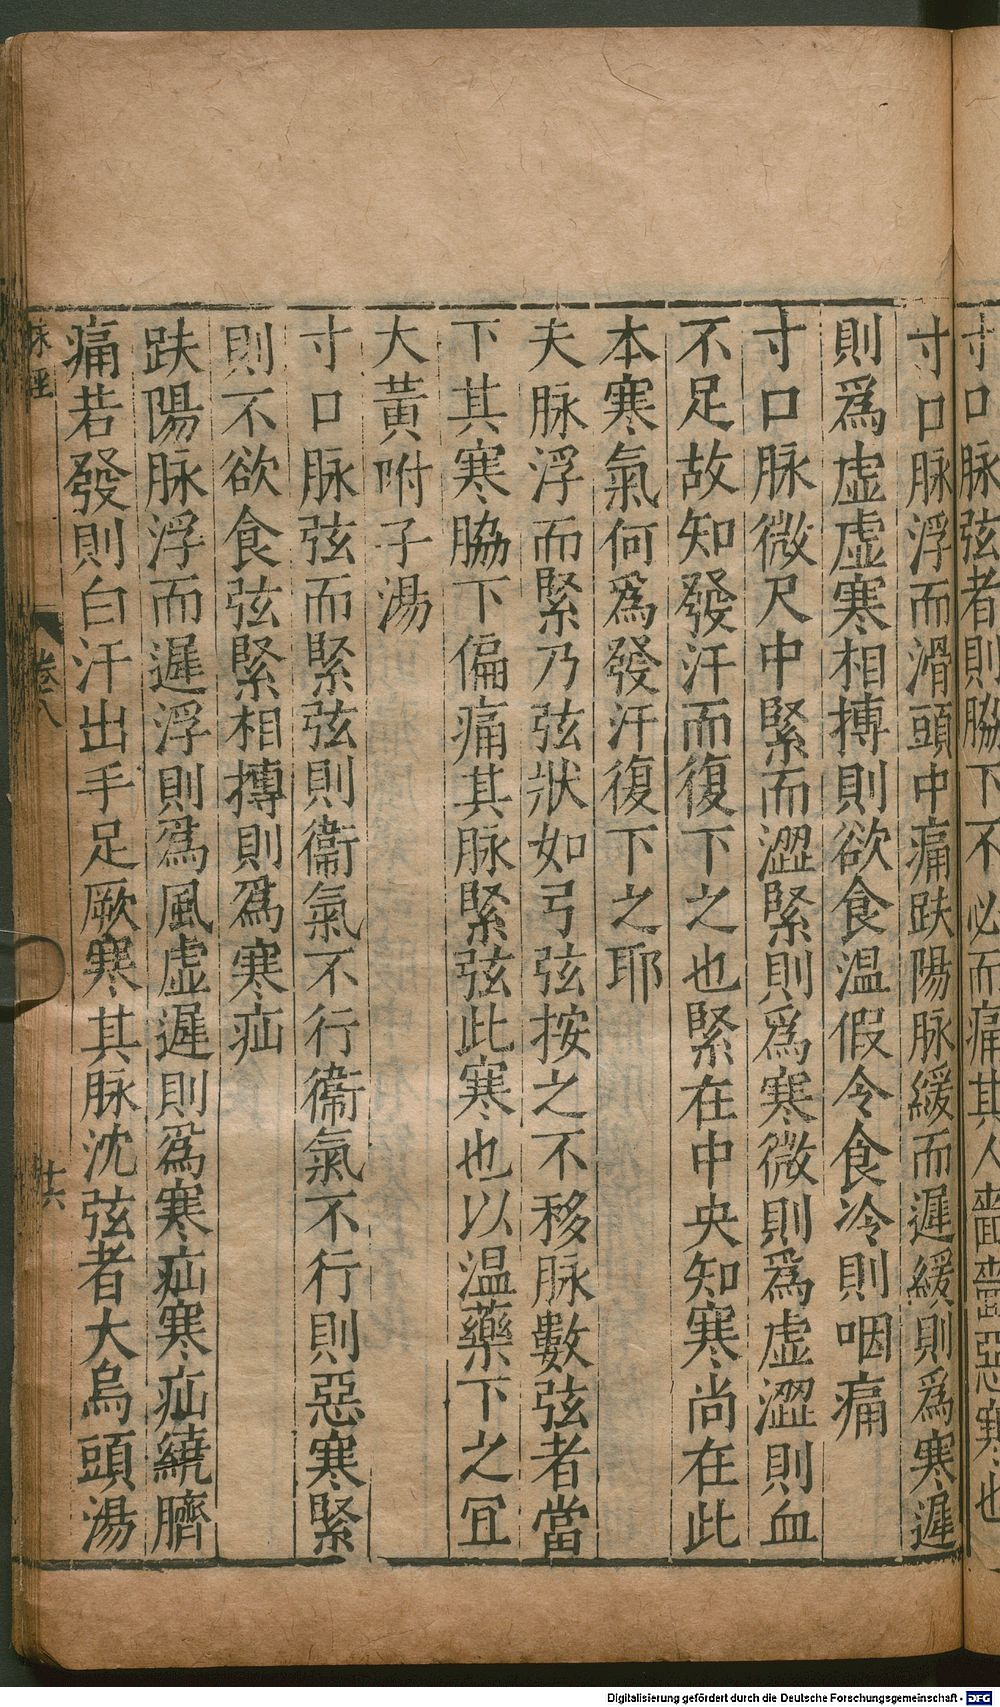 寸口脉弦者則脇下不必而痛其人嗇嗇惡寒也
寸口脉浮而滑頭中痛趺陽脉緩而遲緩則爲寒遲
則爲虚虚寒相搏則欲食温假令食冷則咽痛
寸口脉微尺中緊而澀緊則爲寒微則爲虚澀則血
不足故知發汗而復下之也緊在中央知寒尚在此
本寒氣何爲發汗復下之耶
夫脉浮而緊乃弦狀如弓弦按之不移脉數弦者當
下其寒脇下偏痛其脉緊弦此寒也以温藥下之冝
大黄附子湯
寸口脉弦而緊弦則衞氣不行衞氣不行則惡寒緊
則不欲食弦緊相搏則爲寒疝
趺陽脉浮而遲浮則爲風虚遲則爲寒疝寒疝繞臍
痛若發則白汗出手足厥寒其脉沈弦者大烏頭湯
脉經
卷八
十六
Digitalisierung gefördert durch die Deutsche Forschungsgemeinschaft - DFG